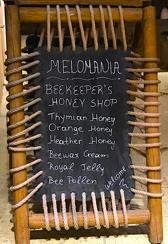 MELOMANIA
BEEKEEPER'S
HONEY SHOP
Thymian Honey
Orange Honey
Heather Honey
Beewax Cream
Royal Jelly
Bee Pollen
Welcome